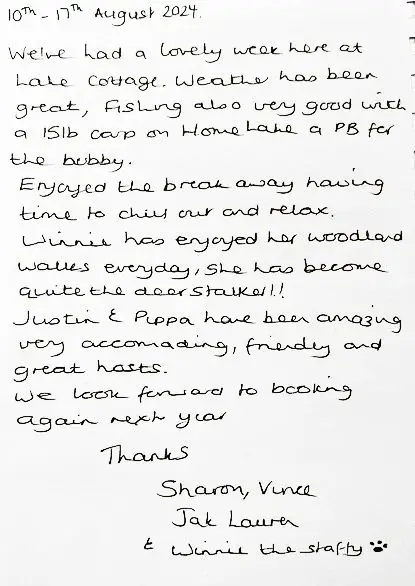 10TH - 17TH August 2024.
We've had a lovely week here at
Lake Cottage. Weather has been
great, Fishing also very good with
a 15lb carp on Home Lake a PB for
the hubby.
Enjoyed the break away having
time to chill out and relax.
Winnie has enjoyed her woodland
walks everyday, she has become
quite the deer stalker!!
Justin & Pippa have been amazing
very accomading, friendly and
great hosts.
We look forward to booking
again next year
Thanks
Sharon, Vince
Jak Lauren
& Winnie the staffy